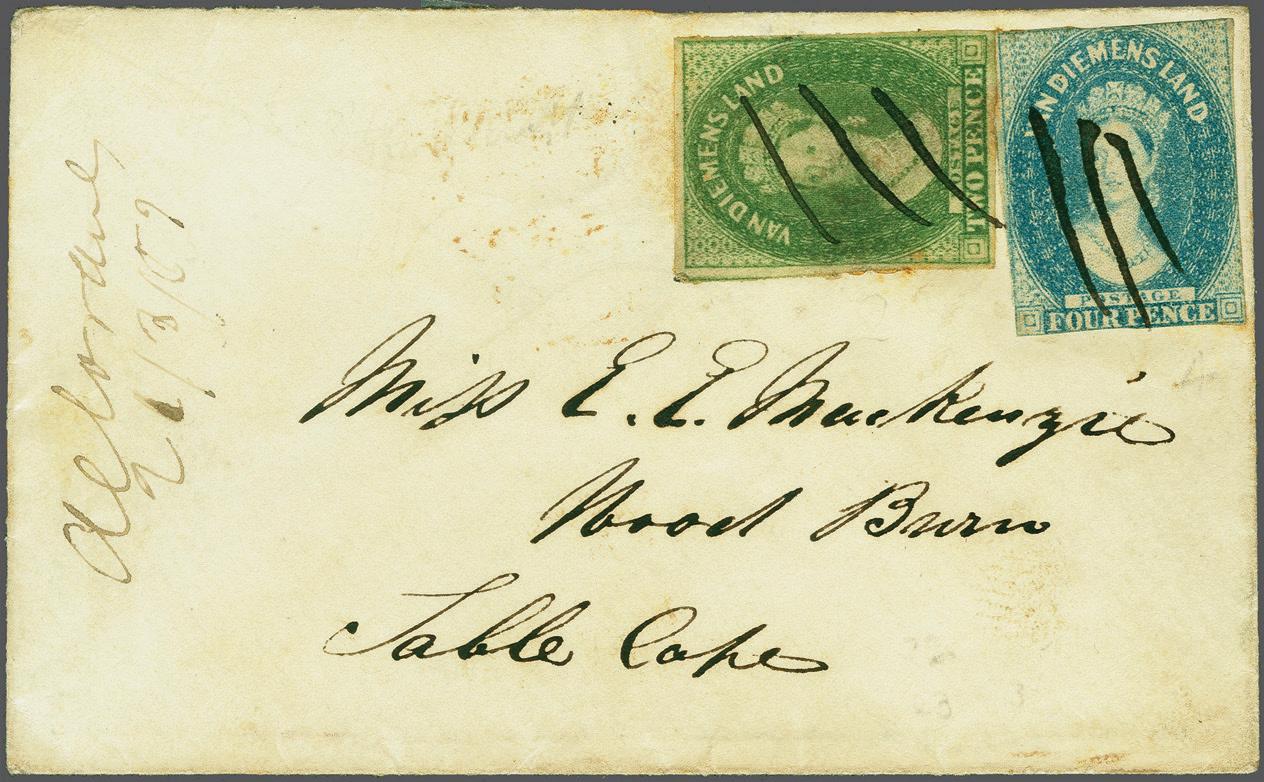 VAN DIEMENS LAND
POSTAGE
TWO PENCE
VAN DIEMENS LAND
POSTAGE
FOUR PENCE
Miss E. E. Mackenzie
Wood Burn
Table Cape